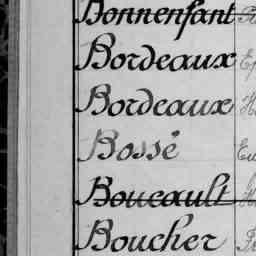 Bonnenfant
Bordeaux
Bordeaux
Bossé
Boucault
Boucher